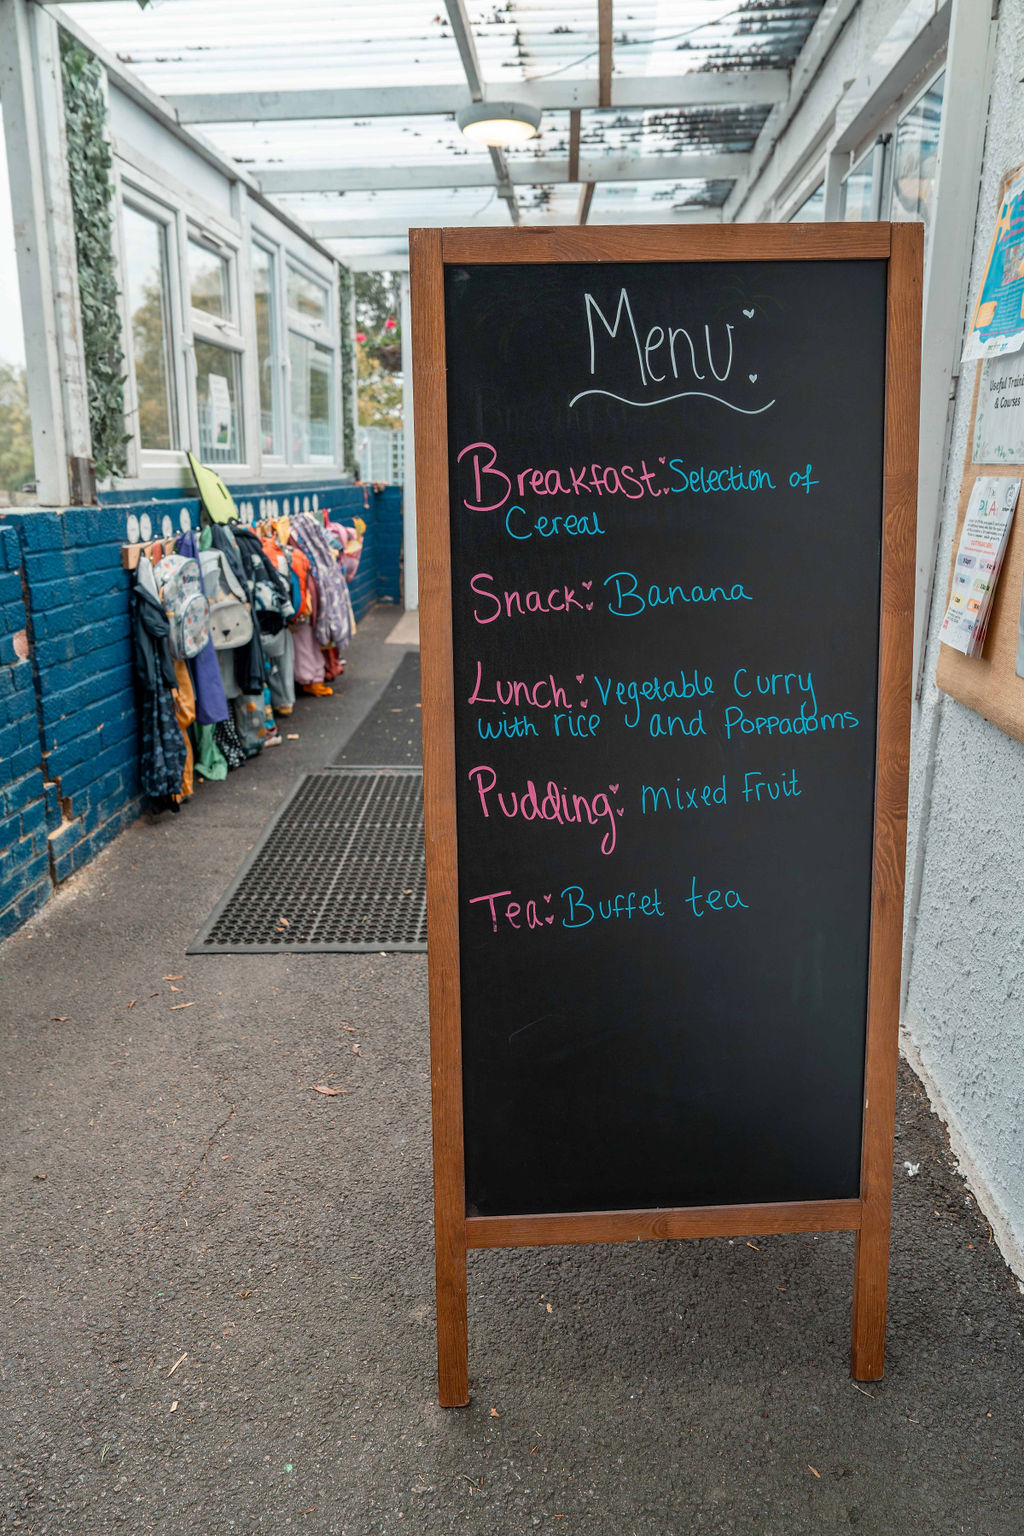 Menu:
Breakfast: Selection of
Cereal
Snack: Banana
Lunch: Vegetable Curry
with rice and Poppadoms
Pudding: mixed Fruit
Tea: Buffet tea
Useful
& Courses